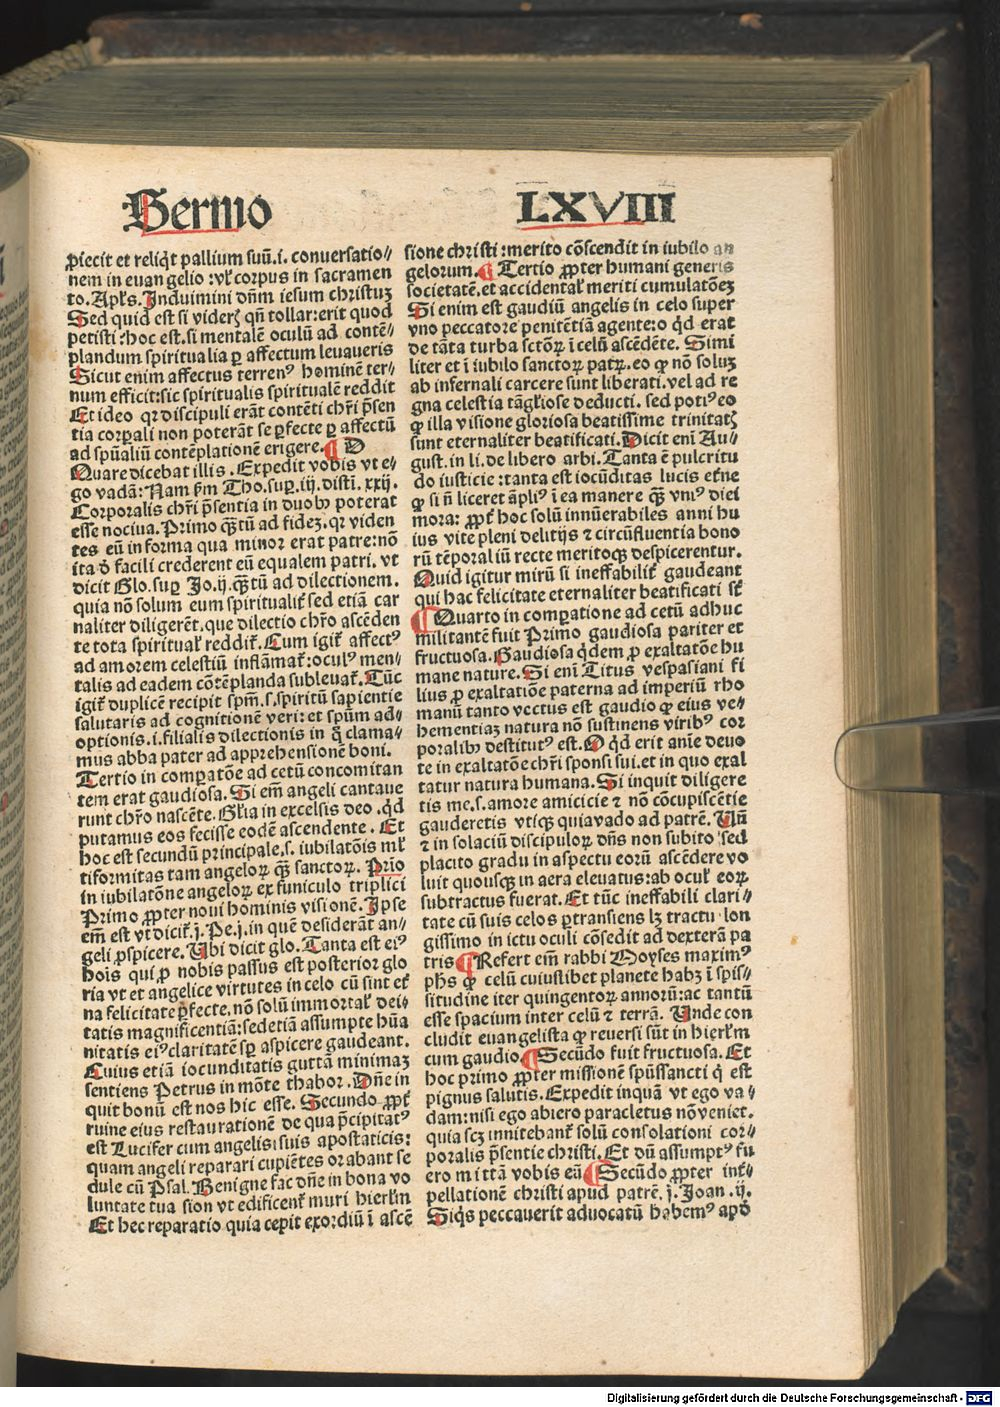 Sermo LXVIII
ꝓiecit et reliq̇t pallium suū.i. conuersatio⸗
nem in euangelio :vl̕ corpus in sacramen
to. Apl̕s. Induimini dn̄m iesum christuꝫ
Sed quid est si viderꝭ qn̄ tollar: erit quod
petisti: hoc est. si mentalē oculū ad contē⸗
plandum spiritualia ꝑ affectum leuaueris
Sicut enim affectus terrenꝰ hominē ter⸗
num efficit: sic spiritualis spiritualē reddit
Et ideo qꝛ discipuli erāt contēti chr̄i p̄sen
tia corꝑali non poterāt se ꝑfecte ꝑ affectū
ad spūaliū contēplationē erigere. ¶ O
Quare dicebat illis . Expedit vobis vt e⸗
go vadā: Nam ẜm Tho.suꝑ.iij. disti. xxij.
Corporalis chr̄i p̄sentia in duobꝰ poterat
esse nociua. Primo qꝫtū ad fideꝫ. qꝛ viden
tes eū in forma qua minor erat patre: nō
ita ď facili crederent eū equalem patri. vt
dicit Glo.suꝑ Jo.ij. qꝫtū ad dilectionem.
quia nō solum eum spiritualit̕ sed etiā car
naliter diligerēt. que dilectio chr̄o ascēden
te tota spiritual̕ reddit̕. Cum igit̕ affectꝰ
ad amorem celestiū inflāmat̕: oculꝰ men⸗
talis ad eadem cōtēplanda subleuat̕. Tūc
igit̕ duplicē recipit spm̄. s. spiritū sapientie
salutaris ad cognitionē veri: et spūm ad⸗
optionis .i. filialis dilectionis in q̇ clama⸗
mus abba pater ad apprehensionē boni.
Tertio in comꝑatōe ad cetū concomitan
tem erat gaudiosa. Si em̄ angeli cantaue
runt chr̄o nascēte. Glia in excelsis deo . qd̓
putamus eos fecisse eodē ascendente . Et
hoc est secundū principale. s. iubilatōnis ml̕
tiformitas tam angeloꝝ qꝫ sanctoꝝ. Prīo
in iubilatōne angeloꝝ ex funiculo triplici
Primo ꝓpter noui hominis visionē. Ipse
em̄ est vt dicit̕. j. Pe. j. in quē desiderāt an⸗
geli ꝓspicere. Ubi dicit glo. Tanta est eiꝰ
hoīs qui ꝓ nobis passus est posterior glo
ria vt et angelice virtutes in celo cū sint et̕
na felicitate ꝑfecte, nō solū immortal̕ dei⸗
tatis magnificentiā: sed etiā assumpte hūa
nitatis eiꝰ claritatē sꝑ aspicere gaudeant.
Cuius etiā iocunditatis guttā minimaꝫ
sentiens Petrus in mōte thabor . Dn̄e in
quit bonū est nos hic esse. Secundo ꝓpt̕
ruine eius restaurationē de qua p̄cipitatꝰ
est Lucifer cum angelis suis apostaticis:
quam angeli reparari cupiētes orabant se
dule cū Psal. Benigne fac dn̄e in bona vo
luntate tua sion vt edificent̕ muri hierl̄m
Et hec reparatio quia cepit exordiū ī ascē
sione christi : merito cōscendit in iubilo an
gelorum. ¶ Tertio ꝓpter humani generis
societatē. et accidental̕ meriti cumulatōeꝫ
Si enim est gaudiū angelis in celo super
vno peccatore penitētiā agente: o q̇d erat
de tāta turba sctōꝝ ī celū ascēdēte. Simi
liter et ī iubilo sanctoꝝ patꝝ. eo ꝙ nō soluꝫ
ab infernali carcere sunt liberati. vel ad re
gna celestia tā gl̓iose deducti. sed potiꝰ eo
ꝙ illa visione gloriosa beatissime trinitatꝭ
sunt eternaliter beatificati. Dicit eni Au⸗
gust. in li. de libero arbi. Tanta ē pulcritu
do iusticie : tanta est iocūditas lucis et̕ne
ꝙ si n̄ liceret āpliꝰ ī ea manere qꝫ vniꝰ diei
mora: ꝓpt̕ hoc solū innūerabiles anni hu
ius vite pleni delitijs ⁊ circūfluentia bono
rū tēporaliū recte meritoqꝫ despicerentur.
Quid igitur mirū si ineffabilit̕ gaudeant
qui hac felicitate eternaliter beatificati st̕
¶ Quarto in comꝑatione ad cetū adhuc
militantē fuit Primo gaudiosa pariter et
fructuosa. Gaudiosa q̇dem ꝓ exaltatōe hu
mane nature. Si eni Titus vespasiani fi
lius ꝓ exaltatiōe paterna ad imperiū rho
manū tanto vectus est gaudio ꝙ eius ve⸗
hementiaꝫ natura nō sustinens viribꝰ cor
poralibꝰ destitutꝰ est. O q̇d erit anīe deuo
te in exaltatōe chr̄i sponsi sui. et in quo exal
tatur natura humana. Si inquit diligere
tis me. s. amore amicicie ⁊ nō cōcupiscētie
gauderetis vtiqꝫ quia vado ad patrē. Uñ
⁊ in solaciū discipuloꝝ dn̄s non subito sed
placito gradu in aspectu eorū ascēdere vo
luit quousqꝫ in aera eleuatus: ab ocul̕ eoꝝ
subtractus fuerat. Et tūc ineffabili clari⸗
tate cū suis celos ꝑtransiens lꝫ tractu lon
gissimo in ictu oculi cōsedit ad dexterā pa
tris ¶ Refert em̄ rabbi Moyses maximꝰ
ph̄s ꝙ celū cuiuslibet planete habꝫ ī spis⸗
situdine iter quingentoꝝ annorū: ac tantū
esse spacium inter celū ⁊ terrā. Unde con
cludit euangelista ꝙ reuersi sūt in hierl̄m
cum gaudio. ¶ Secūdo fuit fructuosa. Et
hoc primo ꝓpter missionē spūssancti q̇ est
pignus salutis. Expedit inquā vt ego va⸗
dam: nisi ego abiero paracletus nō veniet.
quia scꝫ innitebant̕ solū consolationi cor⸗
poralis p̄sentie christi. Et dū assumptꝰ fu
ero mittā vobis eū ¶ Secūdo ꝓpter int̕⸗
pellationē christi apud patrē. j. Joan .ij.
Siq̇s peccauerit aduocatū habemꝰ apď
Digitalisierung gefördert durch die Deutsche Forschungsgemeinschaft - DFG